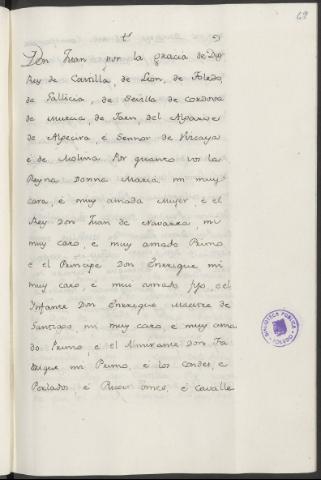 69
Don Juan por la gracia de Dios
Rey de Castilla, de Leon, de Toledo
de Gallicia, de Sevilla de cordova
de Murcia, de Jaen, del Algarve
de Algecira, e Sennor de Vizcaya
e de Molina. Por quanto vos la
Reyna Donna Maria, mi muy
cara, e muy amada Muger, e el
Rey Don Juan de Navarra, mi
muy caro, e muy amado Primo
e el Principe Don Enrrique mi
muy caro, e mui amado fijo, e el
Infante Don Enrrique Maestre de
Santiago, mi muy caro, e muy ama
do Primo, e el Almirante Don Fa
drique mi Primo, e los Condes, e
Perlados, e Ricos omes, e Cavalle
BIBLIOTECA PUBLICA
TOLEDO